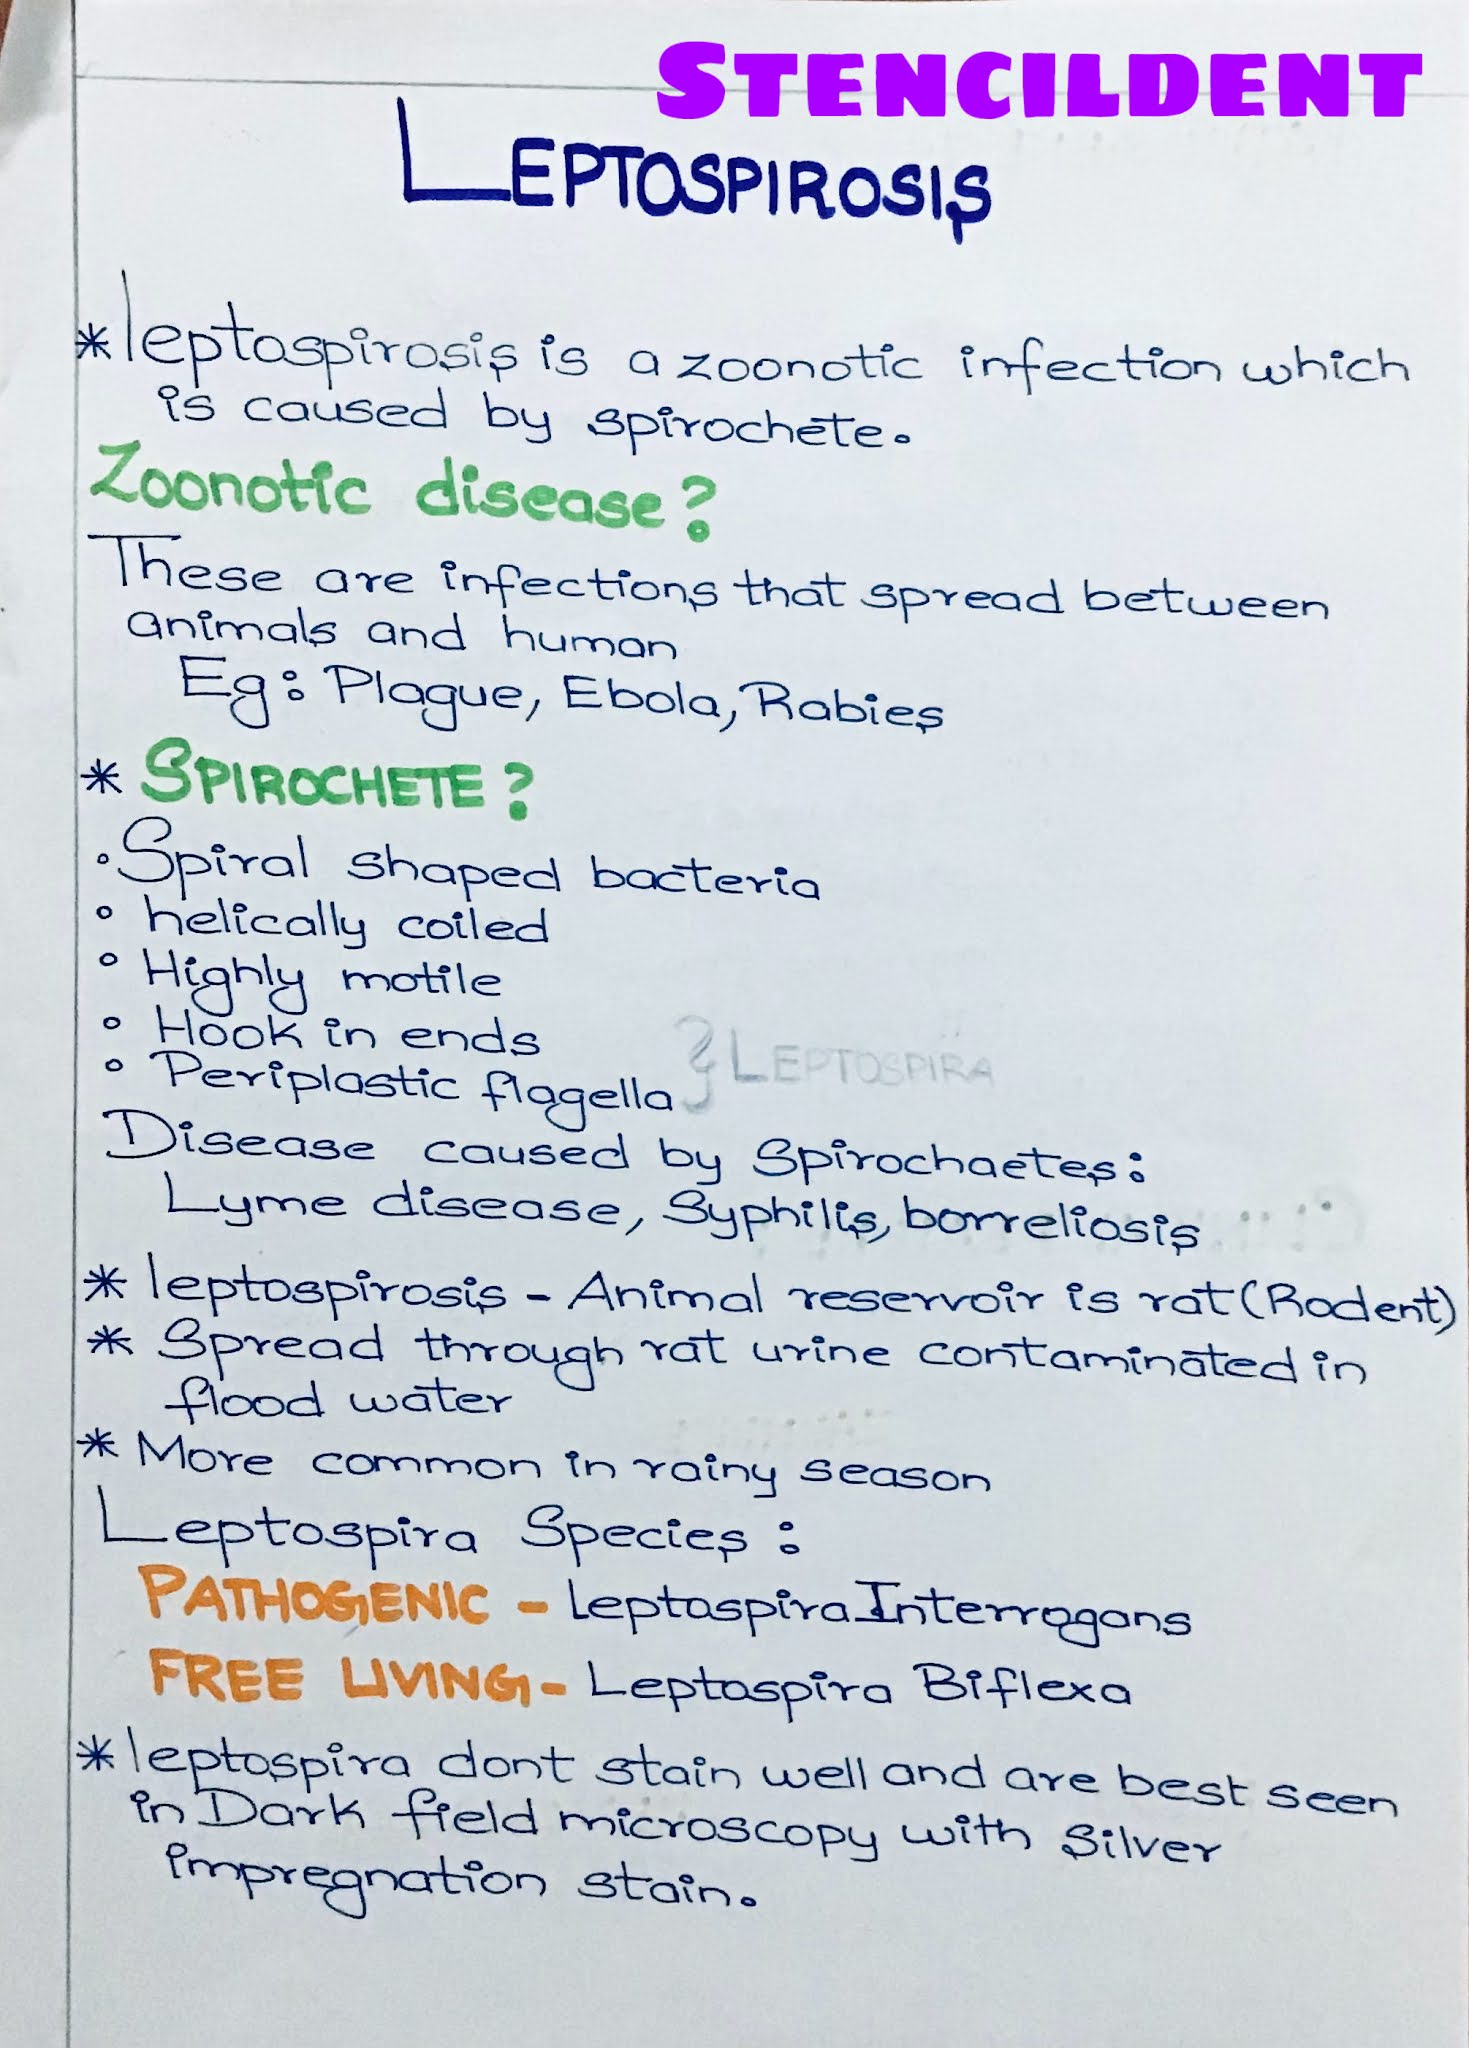 STENCILDENT
LEPTOSPIROSIS
* leptospirosis is a zoonotic infection which
is caused by spirochete.
Zoonotic disease?
These are infections that spread between
animals and human
Eg: Plague, Ebola, Rabies
* SPIROCHETE?
• Spiral shaped bacteria
• helically coiled
• Highly motile
• Hook in ends
• Periplastic flagella } LEPTOSPIRA
Disease caused by Spirochaetes:
Lyme disease, Syphilis, borreliosis
* leptospirosis - Animal reservoir is rat (Rodent)
* Spread through rat urine contaminated in
flood water
* More common in rainy season
Leptospira Species:
PATHOGENIC - Leptospira Interrogans
FREE LIVING - Leptospira Biflexa
* leptospira dont stain well and are best seen
in Dark field microscopy with Silver
impregnation stain.